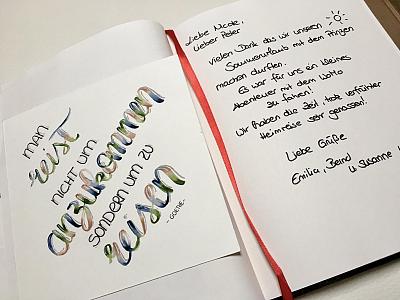 man
reist
nicht um
anzukommen
sondern um zu
reisen
-GOETHE-
Liebe Nicole,
Lieber Peter
vielen Dank das wir unseren
Sommerurlaub mit dem Prinzen
machen durften.
Es war für uns ein kleines
Abenteuer mit dem WoMo
zu fahren!
Wir haben die Zeit, trotz verfrühter
Heimreise sehr genossen!
Liebe Grüße
Emilia, Bernd
u Susanne